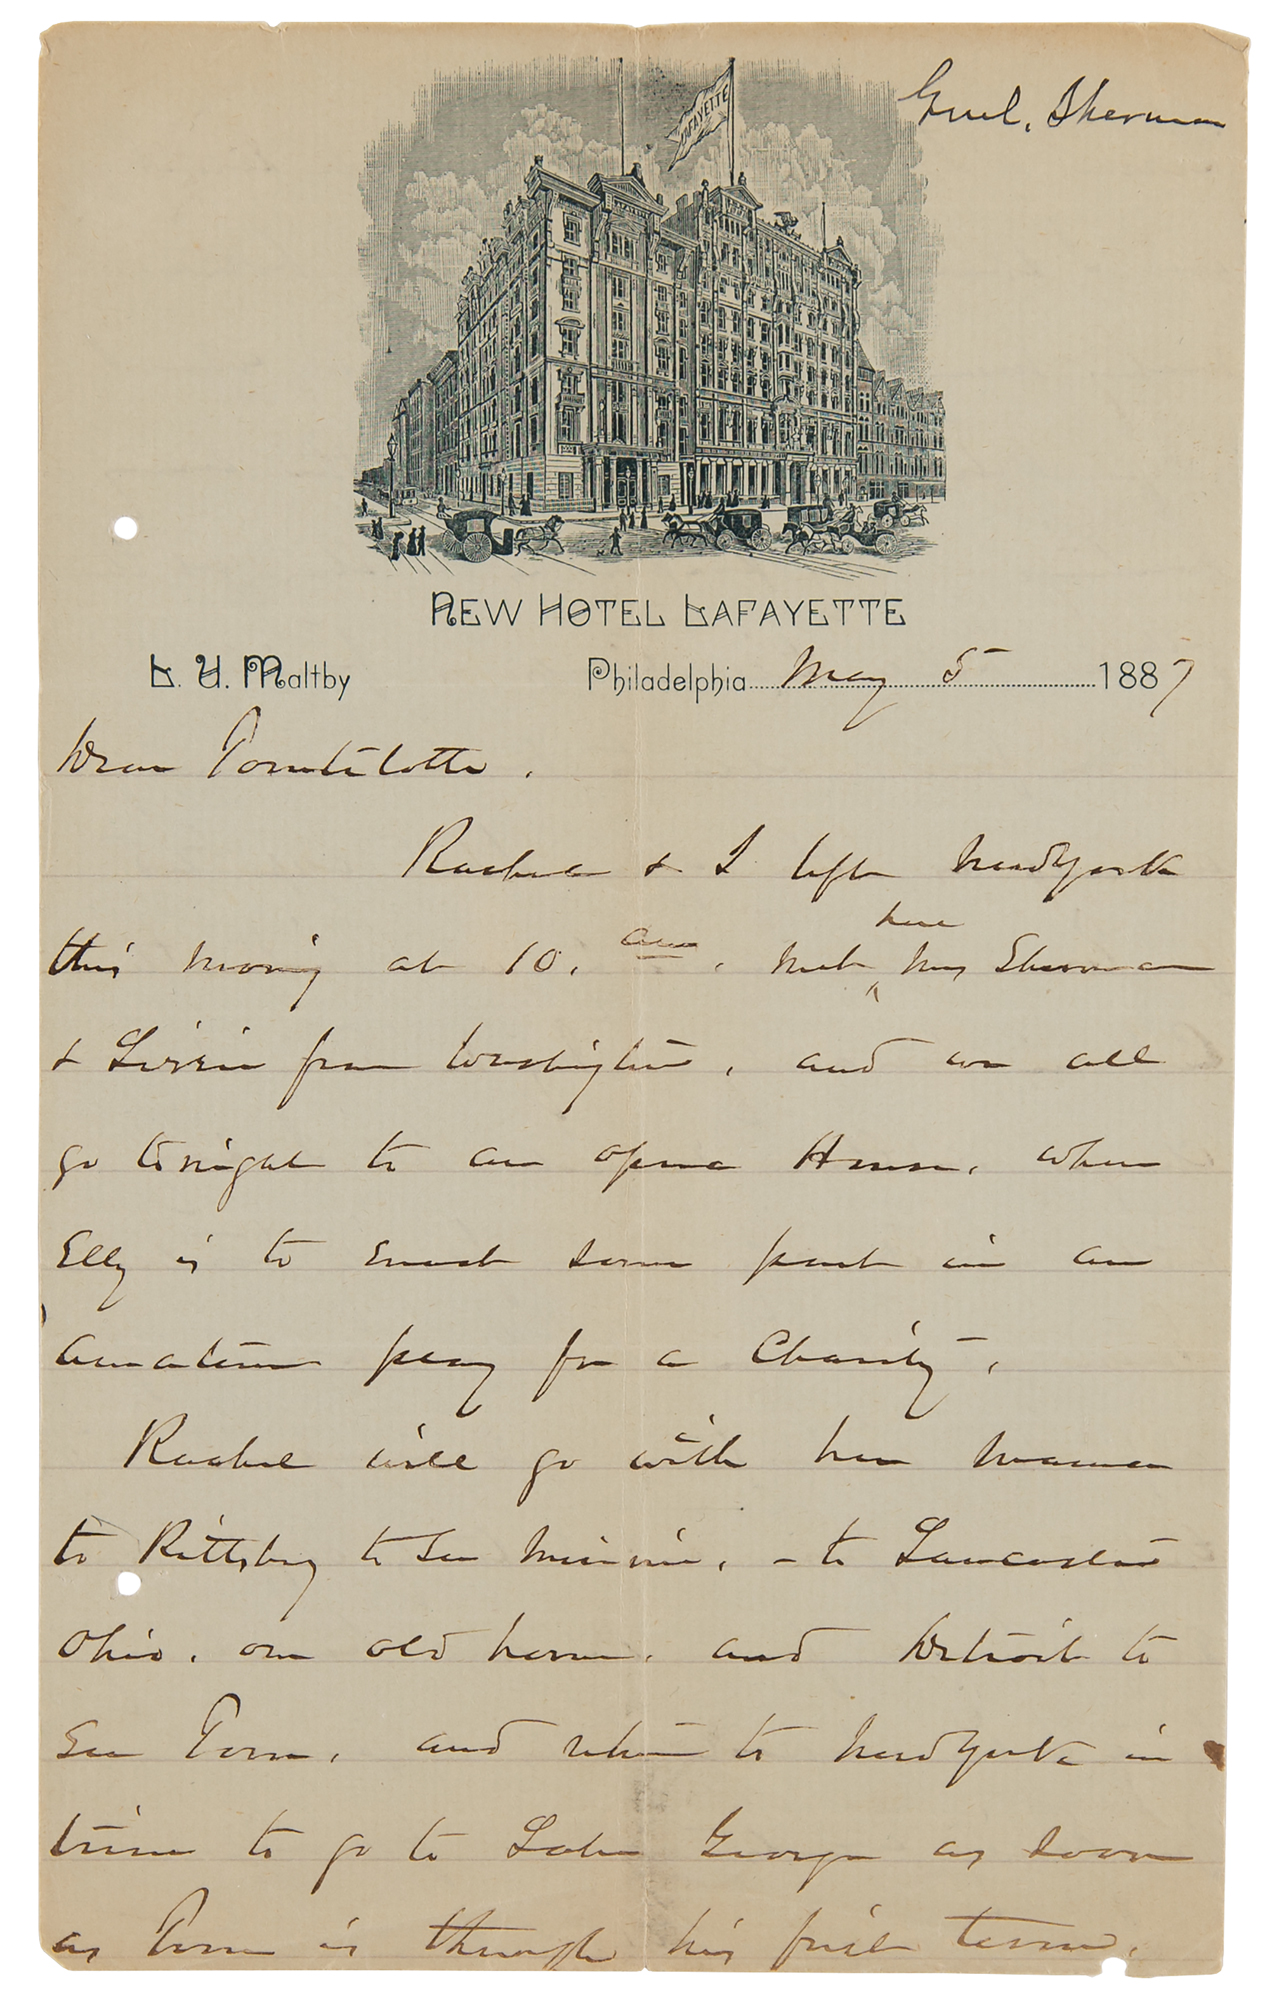 Genl. Sherman
LAFAYETTE
NEW HOTEL LAFAYETTE
L. U. Maltby
Philadelphia May 5 1887
Dear
Rachel & I left New York
this morning at 10. am. met here Mrs Sherman
& Lizzie from Washington, and we all
go tonight to an opera House, when
Elly is to enact some part in an
amateur play for a Charity.
Rachel will go with her mama
to Pittsburg to see Minnie, - to Lancaster
Ohio, our old home, and Detroit to
see Tom, and return to New York in
time to go to Lake George as soon
as Tom is through his first term.